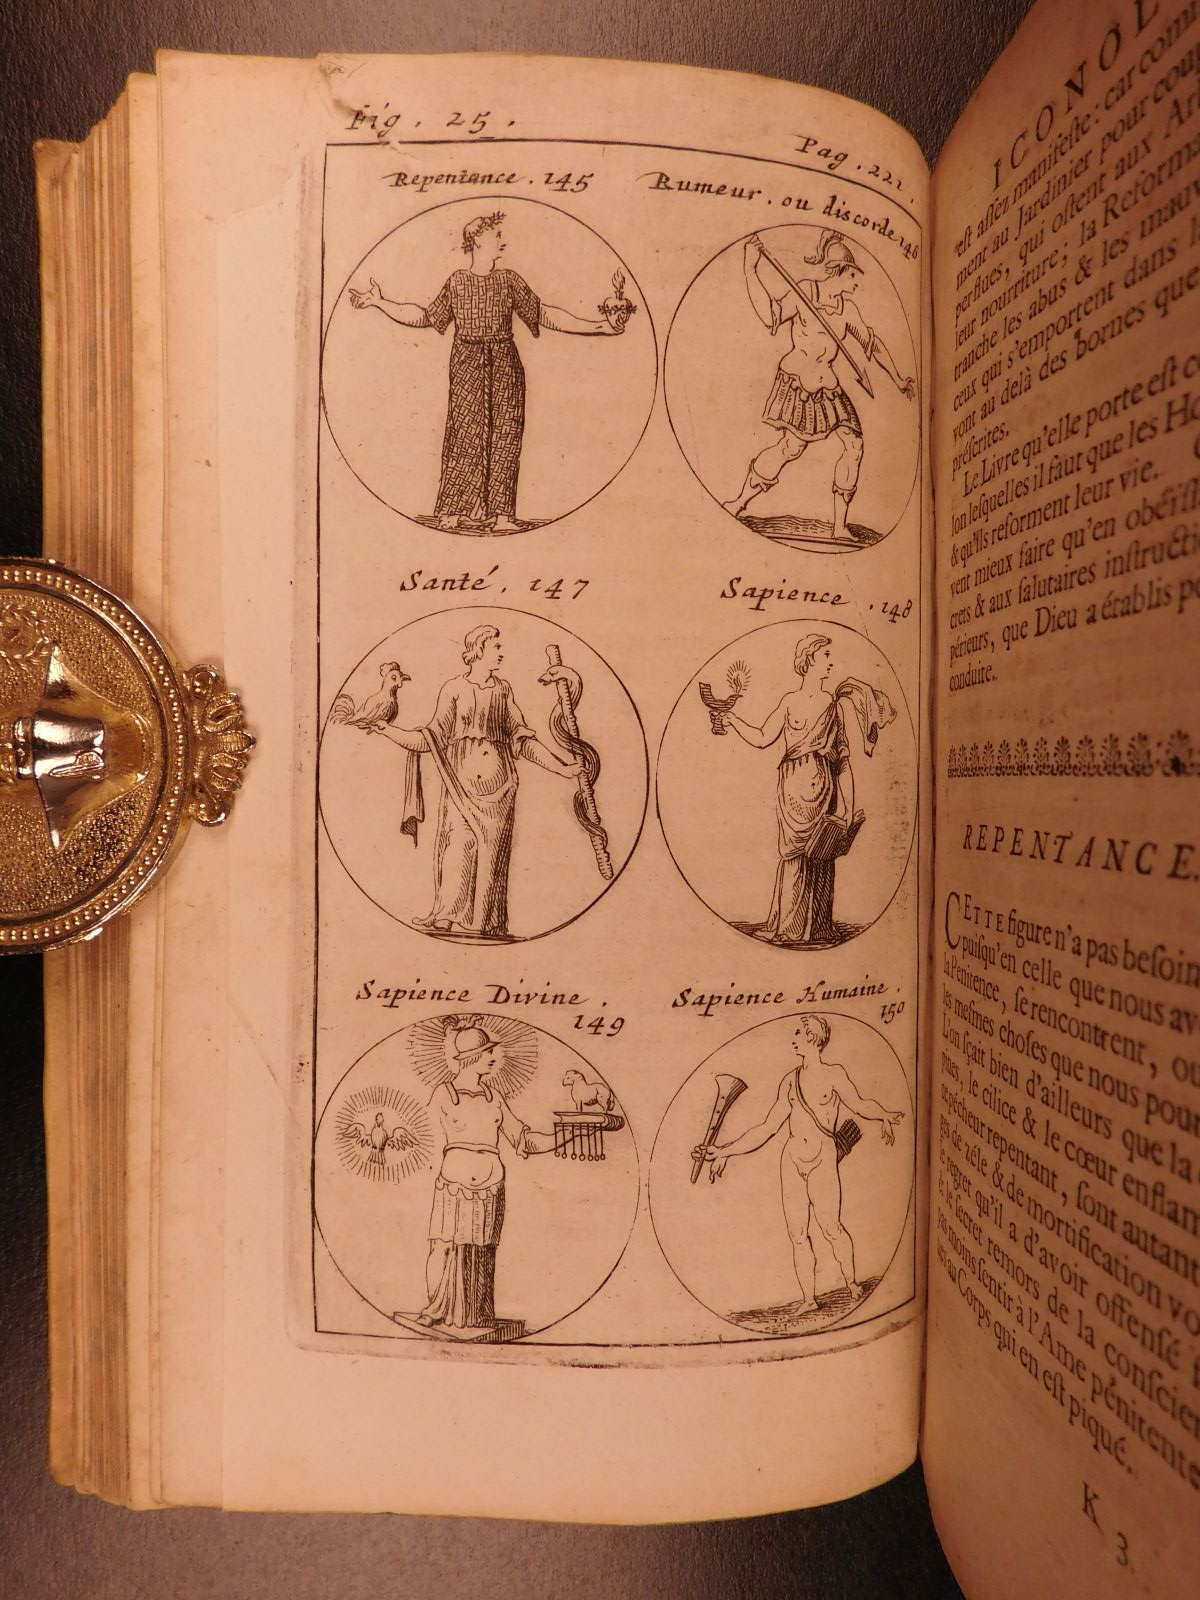 Fig. 25.
Pag. 221.
Repentance. 145
Rumeur, ou discorde 146
Santé. 147
Sapience. 148
Sapience Divine.
149
Sapience Humaine.
150
ICONOL
est assez manifeste: car comm
ment au Jardinier pour coup
perflues, qui ostent aux Ar
leur nourriture; la Reforma
tranche les abus & les mauv
ceux qui s'emportent dans l
vont au delà des bornes que
préscrites.
Le Livre qu'elle porte est c
lon lesquelles il faut que les Ho
& qu'ils reforment leur vie.
vent mieux faire qu'en obéïss
crets & aux salutaires instructi
périeurs, que Dieu a établis po
conduite.
REPENTANCE.
CETTE figure n'a pas besoin
puisqu'en celle que nous av
la Penitence, se rencontrent, ou
les mesmes choses que nous pour
L'on sçait bien d'ailleurs que la
pines, le cilice & le cœur enflam
ce pécheur repentant, sont autant
ges de zéle & de mortification vo
le regret qu'il a d'avoir offensé
& le secret remors de la conscien
pas moins sentir à l'Ame pénitente
au Corps qui en est piqué.
K 3.